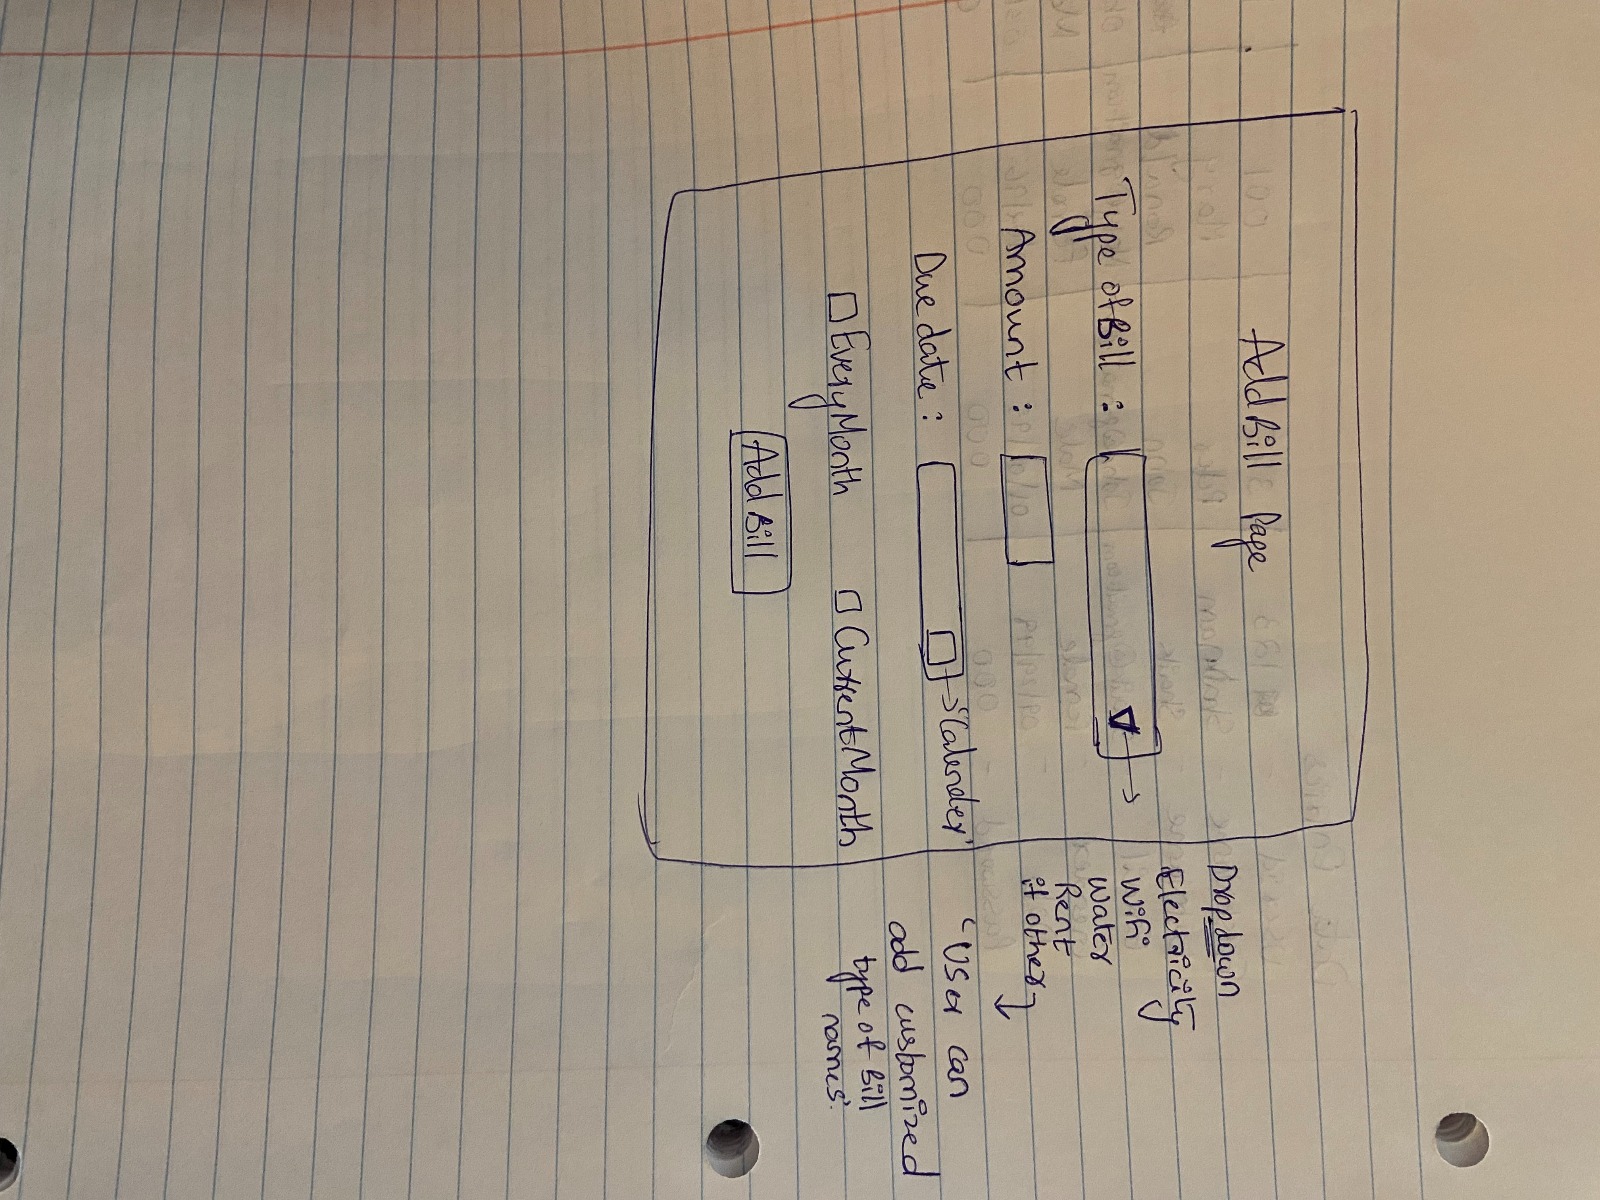 Add Bill Page
Type of Bill :
Amount :
Due date :
'Calender'
Every Month
Current Month
Add Bill
Dropdown
Electricity
Wifi
Water
Rent
if other
'User can
add customized
type of Bill
names'.